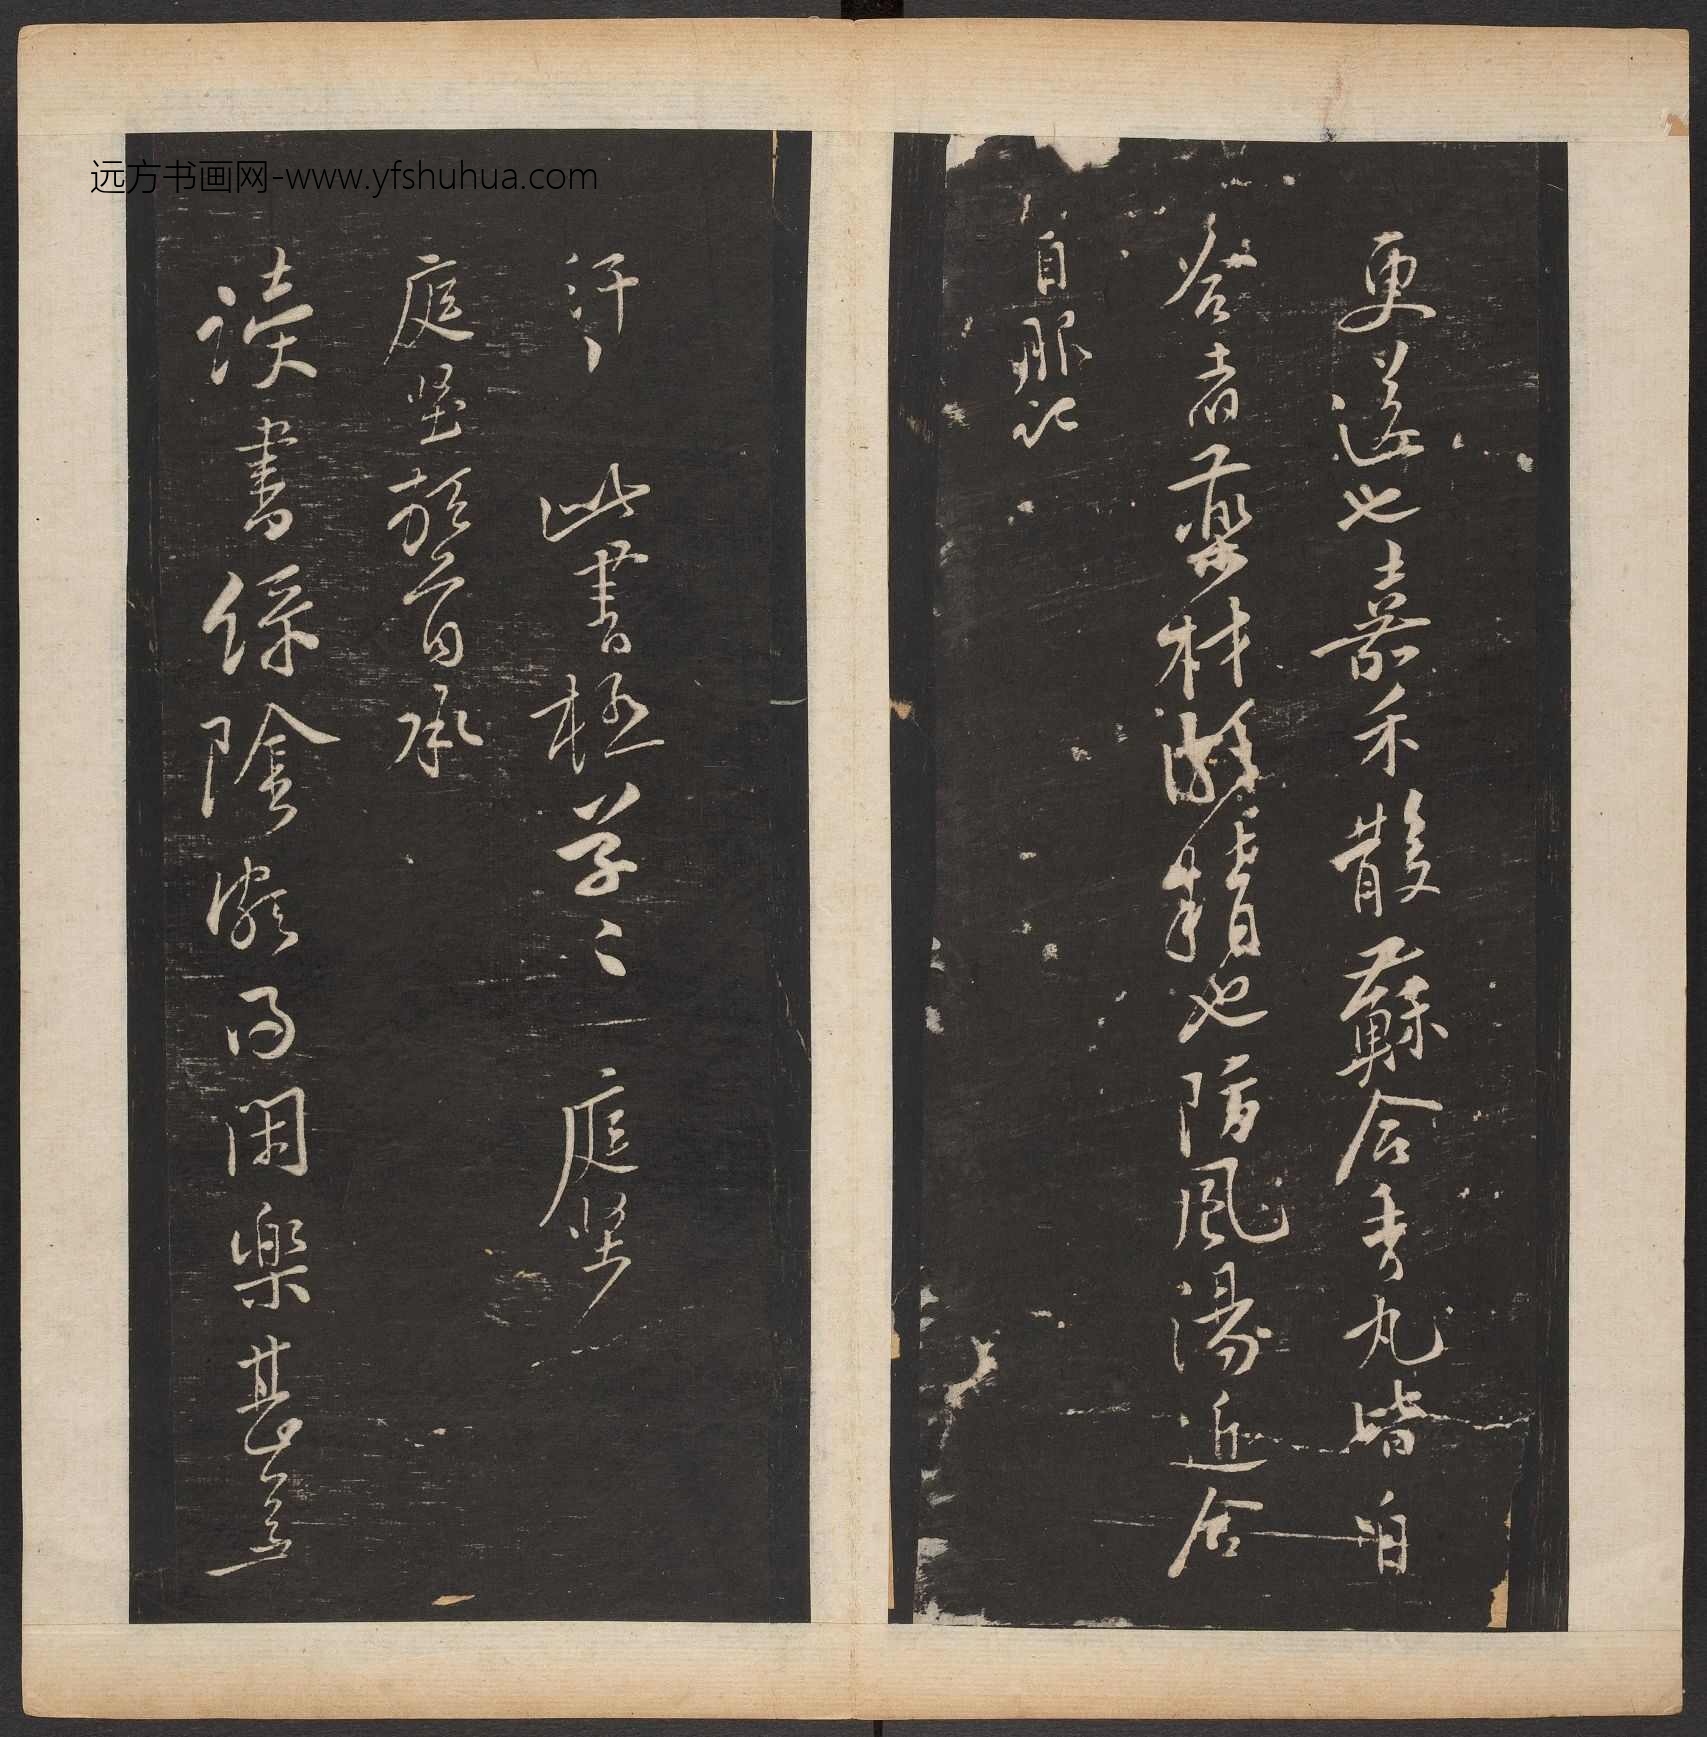 远方书画网-www.yfshuhua.com
更送也嘉禾散蘇合香丸皆自
合者藥材頗精也防風湯近合
自服
汗
此書極草〻庭堅
庭堅頓首承
讀書綵陰殊得閑樂甚善